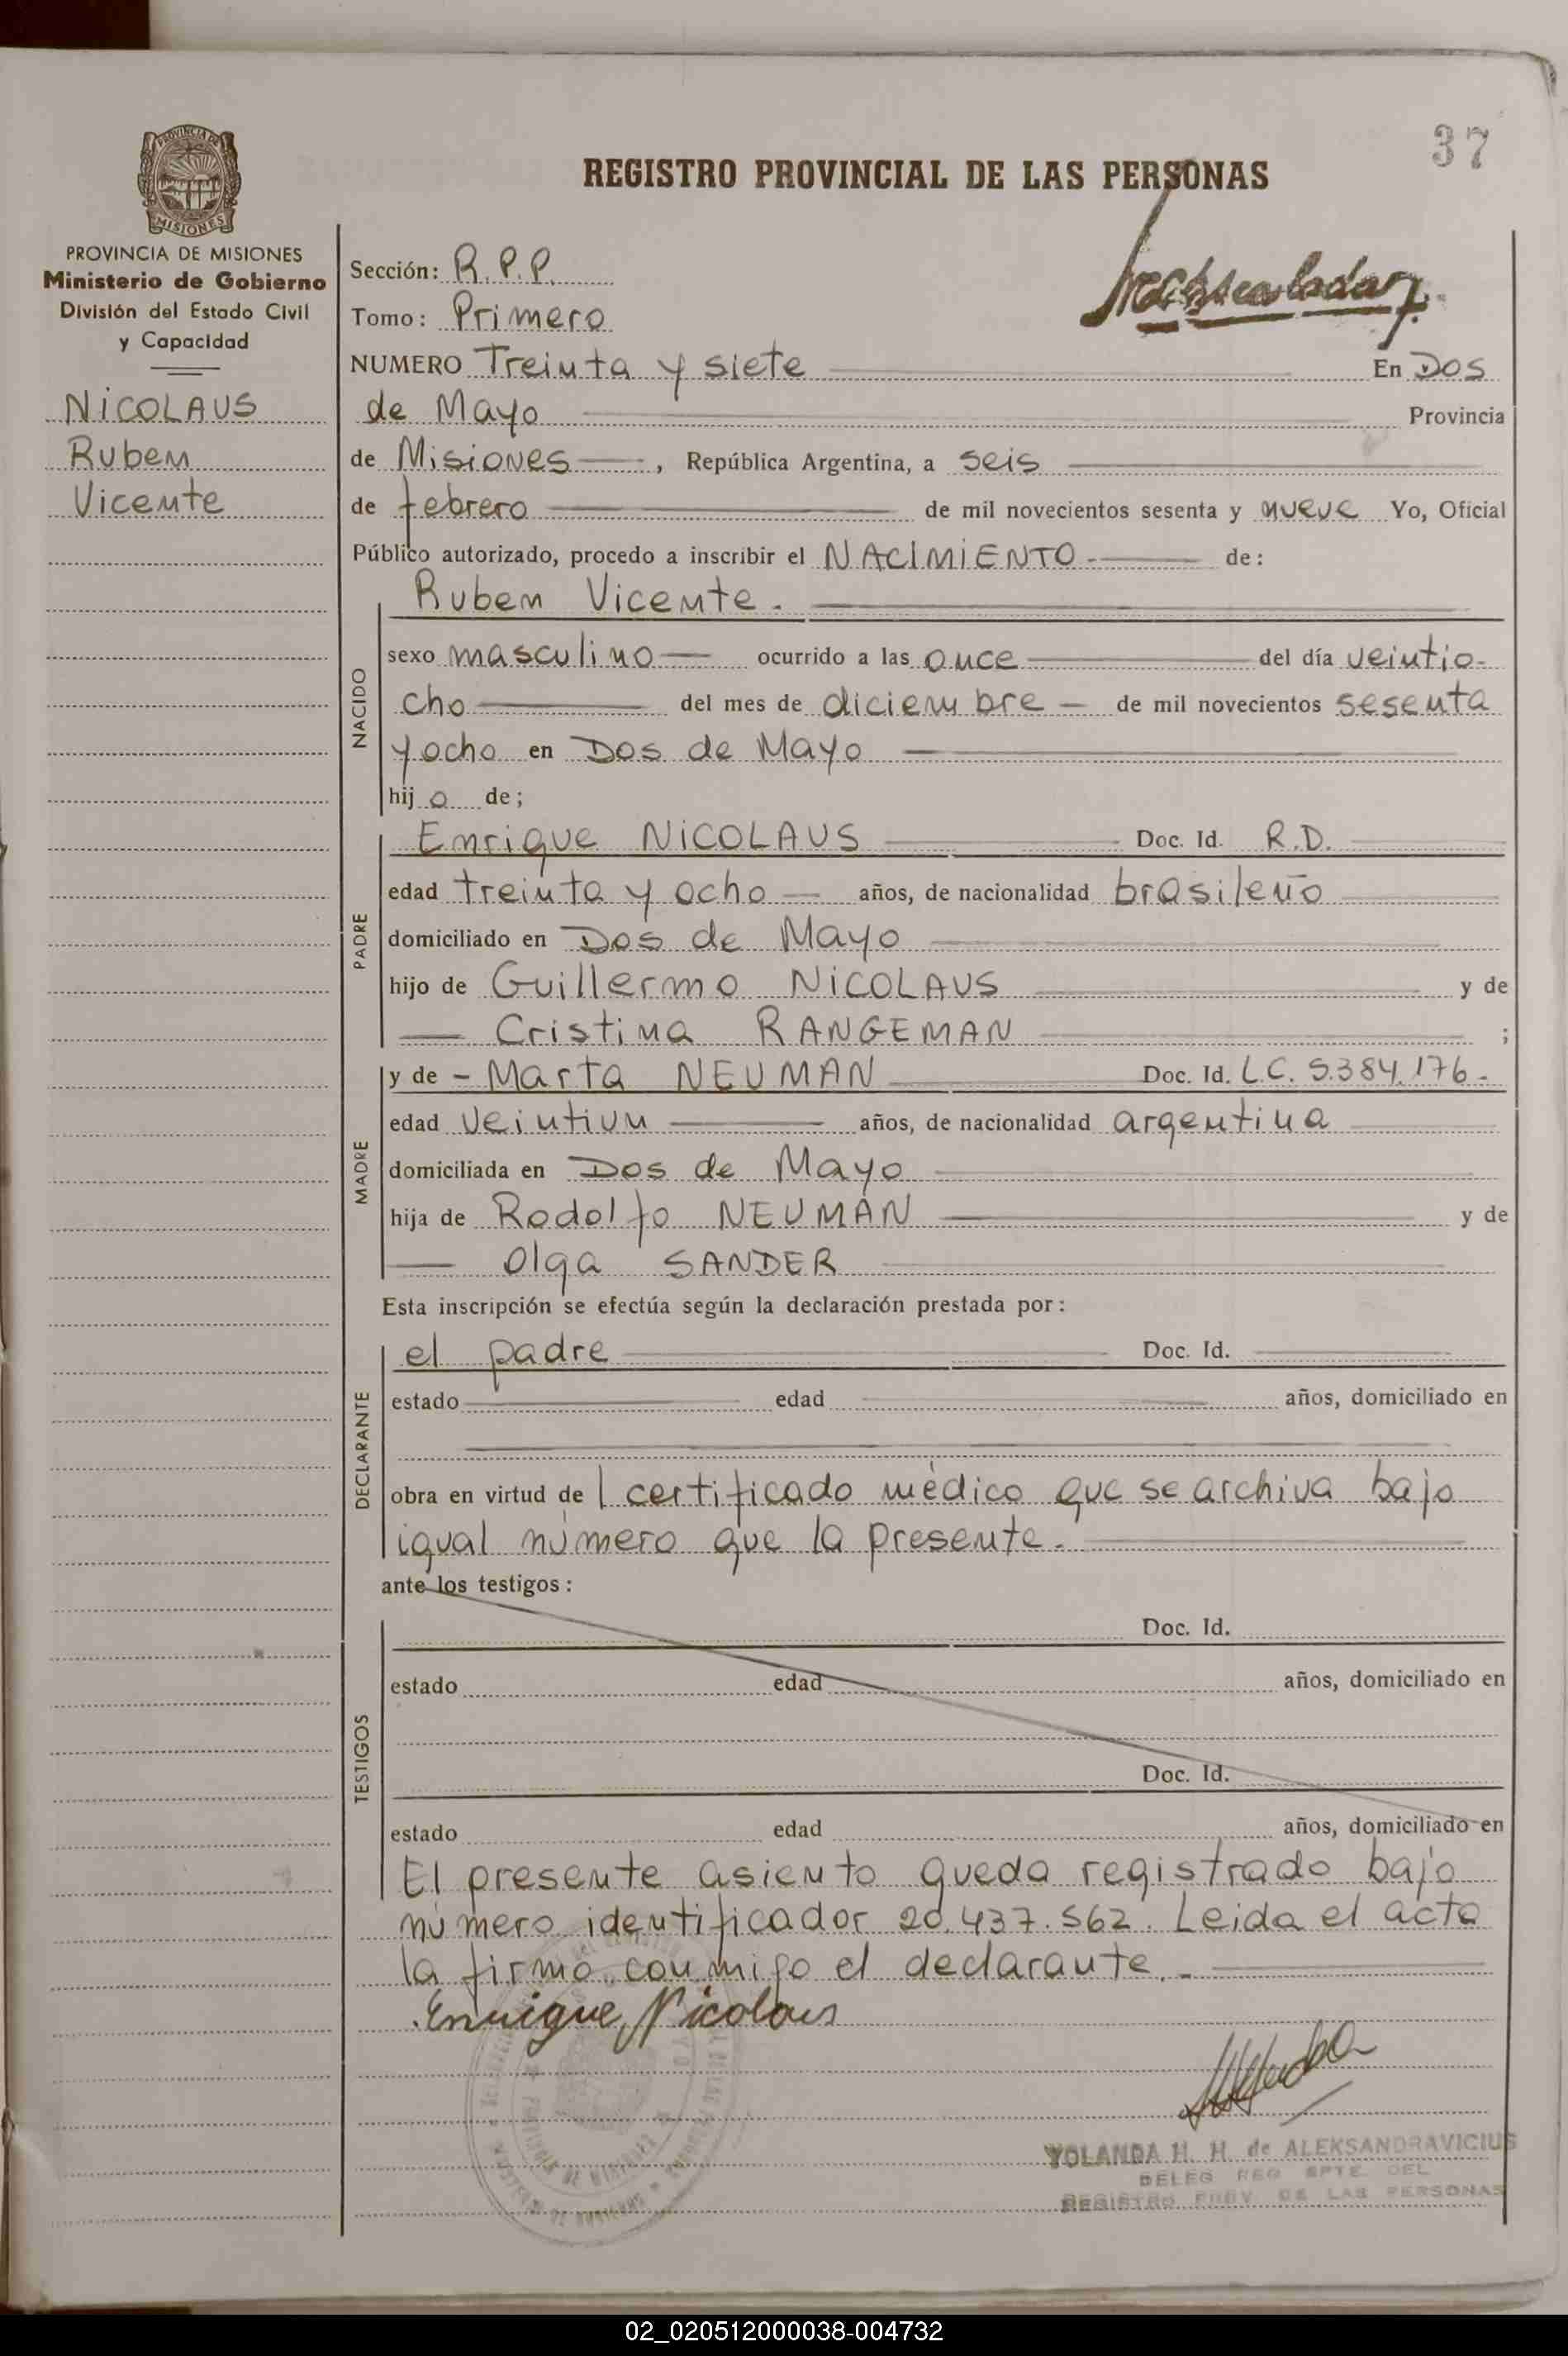 37
REGISTRO PROVINCIAL DE LAS PERSONAS
PROVINCIA DE
MISIONES
PROVINCIA DE MISIONES
Ministerio de Gobierno
División del Estado Civil
y Capacidad
NICOLAUS
Ruben
Vicente
Sección: R.P.P.
Tomo: Primero
NUMERO Treinta y siete En Dos
de Mayo Provincia
de Misiones, República Argentina, a seis
de febrero de mil novecientos sesenta y nueve Yo, Oficial
Público autorizado, procedo a inscribir el NACIMIENTO de:
Ruben Vicente.
NACIDO
sexo masculino ocurrido a las once del día veintio-
cho del mes de diciembre de mil novecientos sesenta
y ocho en Dos de Mayo
hijo de;
PADRE
Enrique NICOLAUS Doc. Id. R.D.
edad treinta y ocho años, de nacionalidad brasileño
domiciliado en Dos de Mayo
hijo de Guillermo NICOLAUS y de
Cristina RANGEMAN ;
MADRE
y de - Marta NEUMAN Doc. Id. L.C. 5.384.176.-
edad veintiun años, de nacionalidad argentina
domiciliada en Dos de Mayo
hija de Rodolfo NEUMAN y de
Olga SANDER
Esta inscripción se efectúa según la declaración prestada por:
DECLARANTE
el padre Doc. Id.
estado edad años, domiciliado en
obra en virtud de l certificado médico que se archiva bajo
igual número que la presente.
ante los testigos:
TESTIGOS
Doc. Id.
estado edad años, domiciliado en
Doc. Id.
estado edad años, domiciliado en
El presente asiento queda registrado bajo
número identificador 20.437.562. Leida el acta
la firma conmigo el declarante.-
Enrique Nicolaus
YOLANDA H. H. de ALEKSANDRAVICIUS
DELEG REG DPTE DEL
REGISTRO PROV. DE LAS PERSONAS
02_020512000038-004732